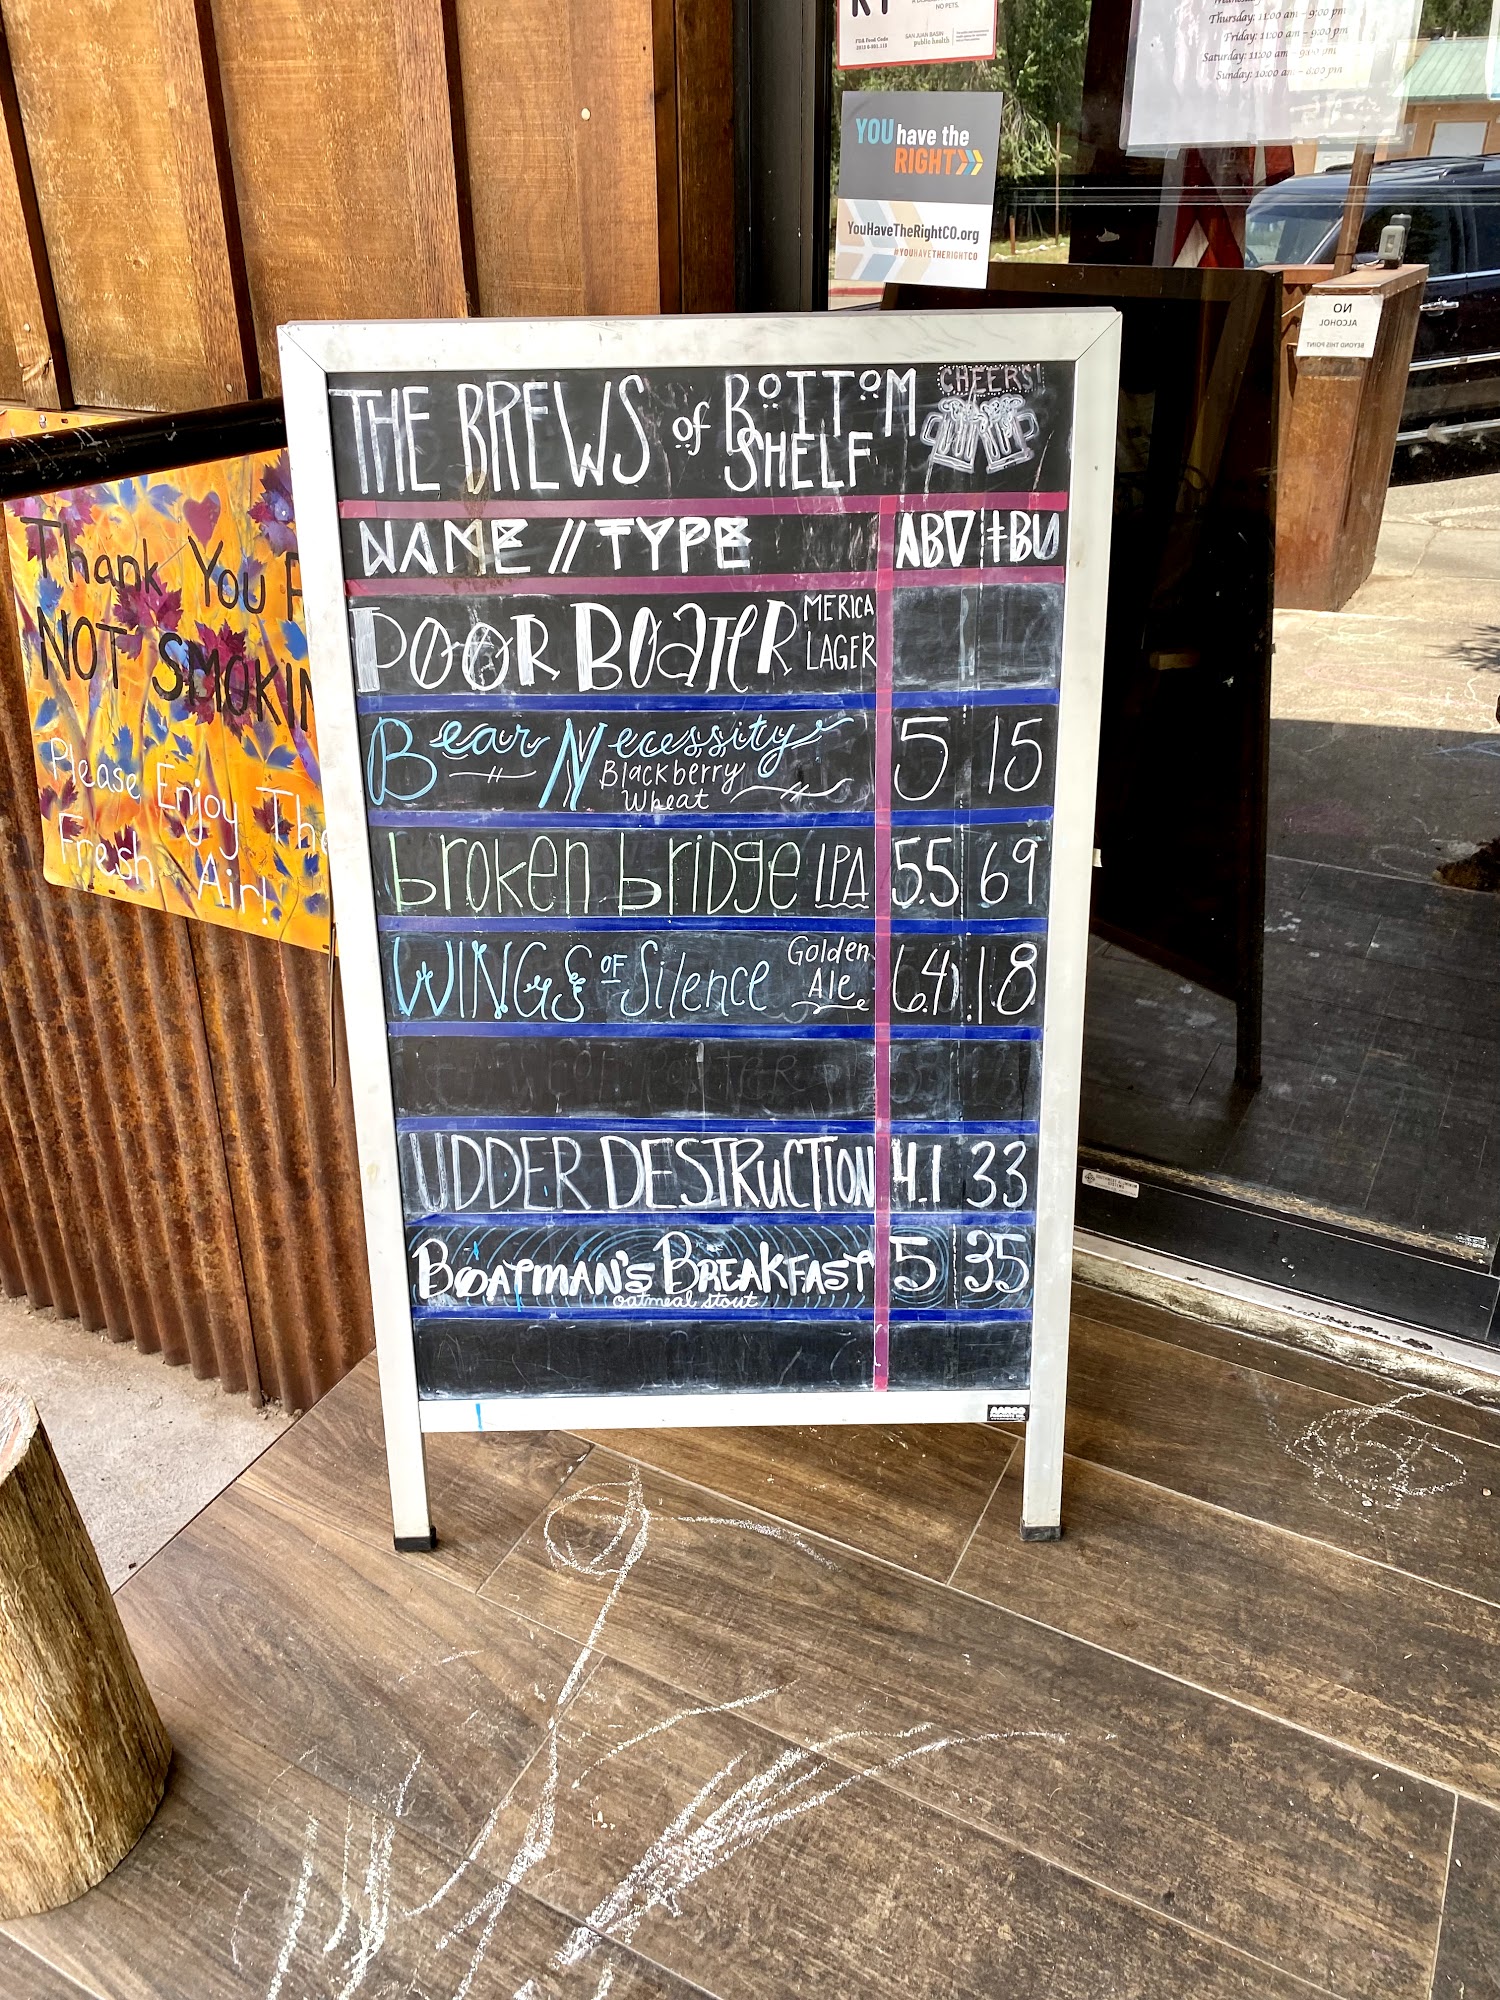 NO PETS.
FDA Food Code
SAN JUAN BASIN
public health
Thursday: 11:00 am - 9:00 pm
Friday: 11:00 am - 9:00 pm
Saturday: 11:00 am - 9:00 pm
Sunday: 10:00 am - 8:00 pm
YOU have the
RIGHT
YouHaveTheRightCO.org
#YOUHAVETHERIGHTCO
NO
ALCOHOL
BEYOND THIS POINT
THE BREWS of BOTTOM
SHELF
CHEERS!
NAME // TYPE ABV IBU
POOR BOATER MERICA
LAGER
Bear Necessity 5 15
Blackberry
Wheat
broken bridge IPA 5.5 69
WINGS OF Silence Golden
Ale 6.4 18
UDDER DESTRUCTION 4.1 33
BOATMAN'S BREAKFAST 5 35
oatmeal stout
Thank You
NOT SMOKIN
Please Enjoy The
Fresh Air!